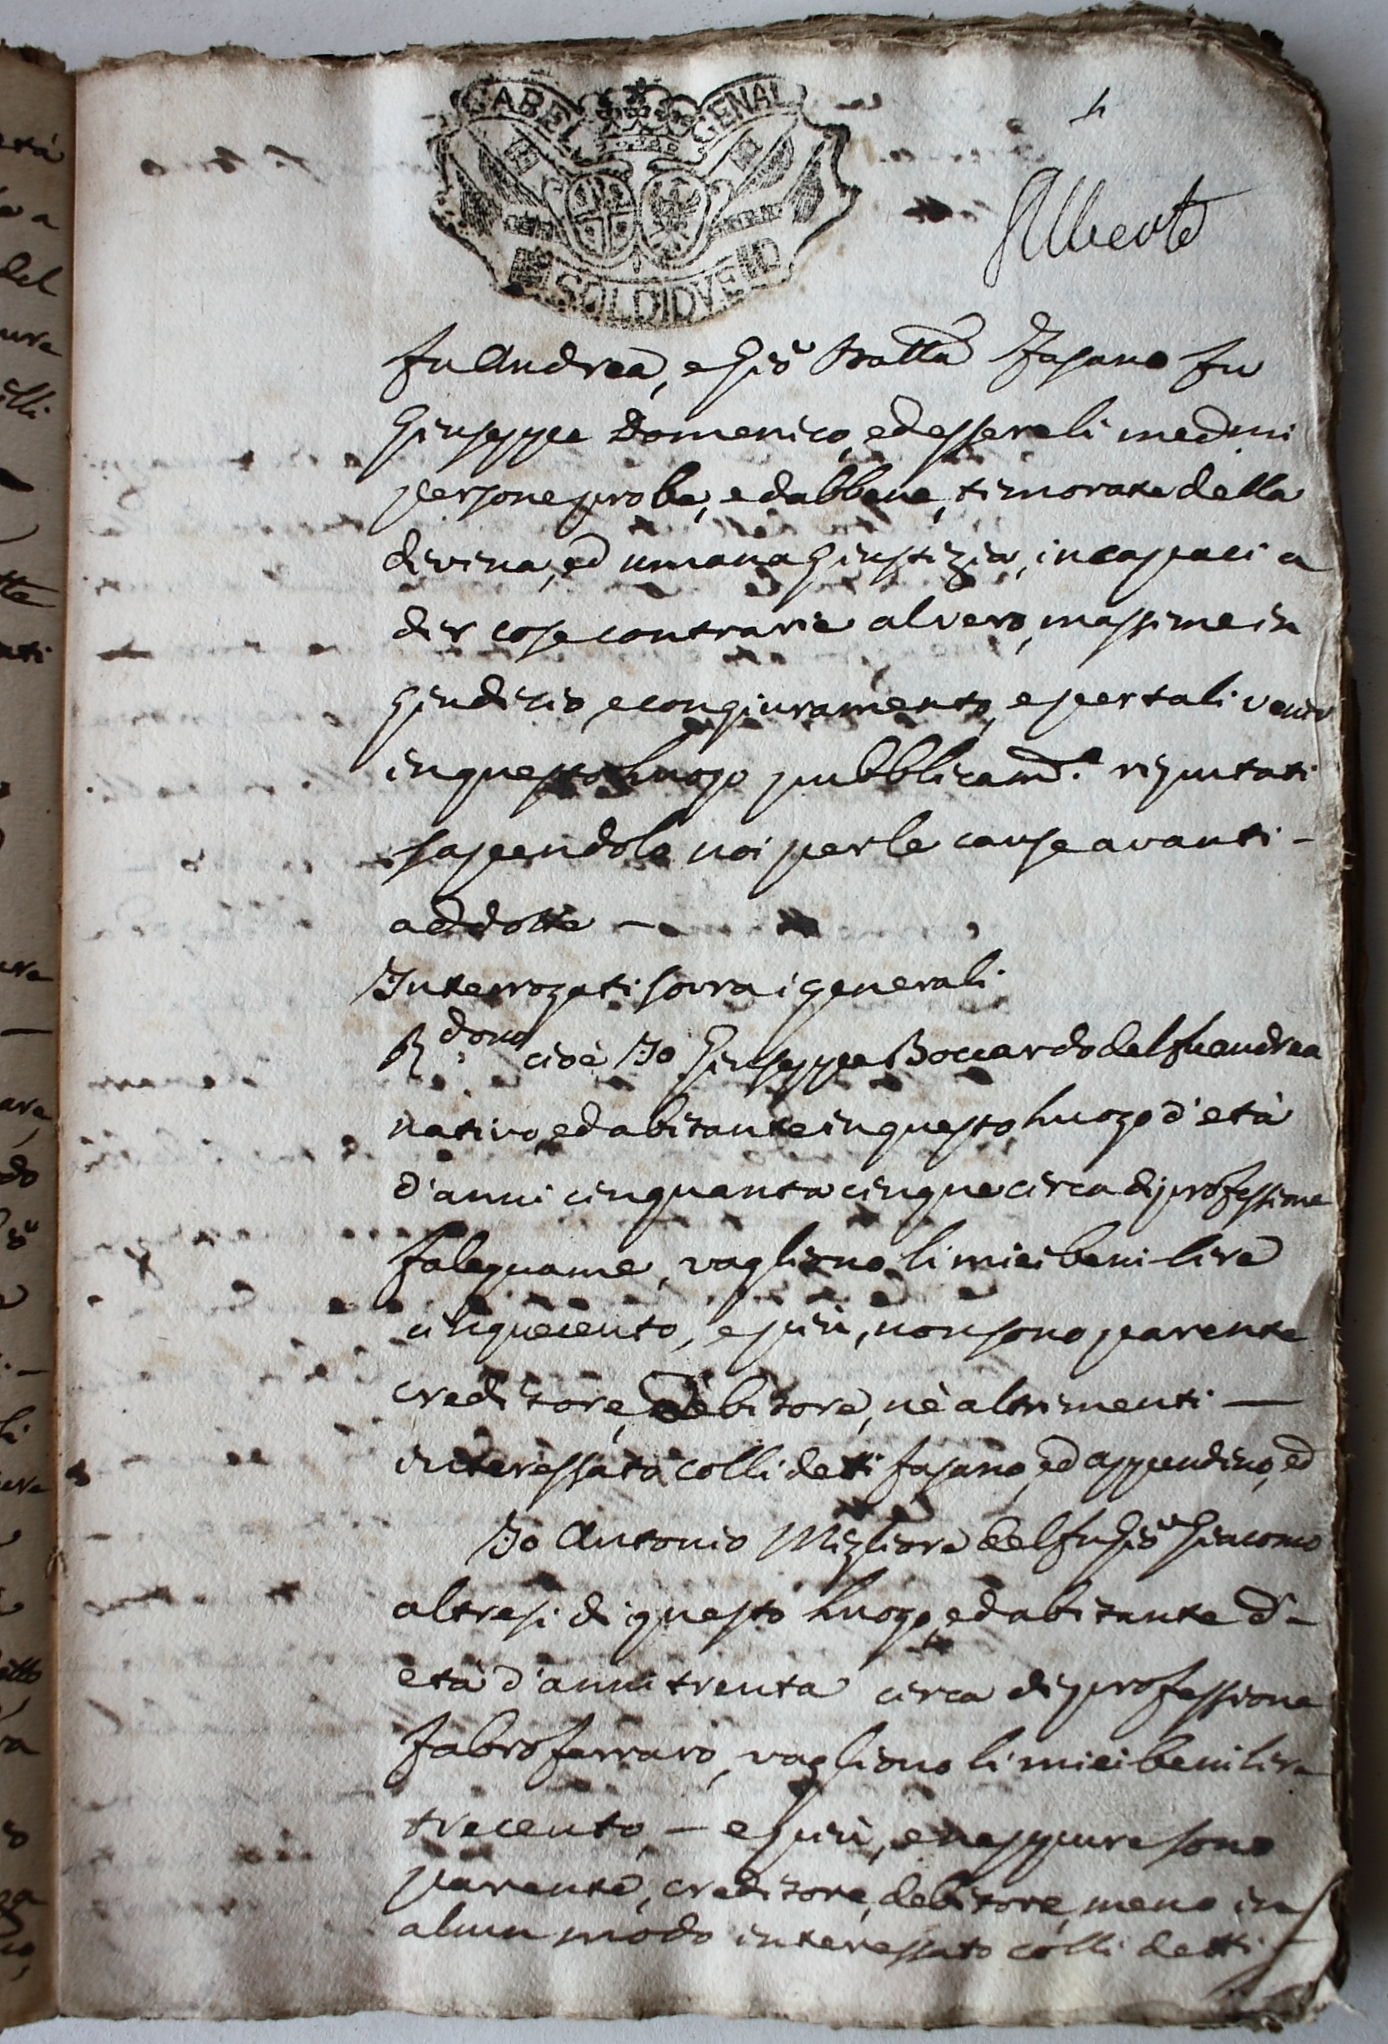 GABEL GENAL
SOLDI DVE
4
Alberto
fu Andrea, e Gio Batta Fasano fu
Giuseppe Domenico, ed essere li medmi
persone probe, e dabbene, timorate della
divina, ed umana Giustizia, incapaci a
dir cose contrarie al vero, massime in
Giudizio, e con giuramento, e per tali
in questo Luogo pubblicamte riputati
sapendolo noi per le cause avanti-
addotte —
Interrogati sovra i generali
Rdono cioè Io Giuseppe Boccardo del fu Andrea
nativo, ed abitante in questo Luogo d'età
d'anni cinquanta cinque circa di professione
falegname, vagliono li miei beni lire
cinquecento, e più, non sono parente
creditore, debitore, nè altrimenti —
interessato colli detti Fasano, ed Appendino, ed
Io Antonio Migliore del fu Gio Giacomo
altresi di questo Luogo, ed abitante d'-
età d'anni trenta circa di professione
Fabro ferraro, vagliono li miei beni lire
trecento — e più, e neppure sono
parente, creditore, debitore, meno in
alcun modo interessato colli detti